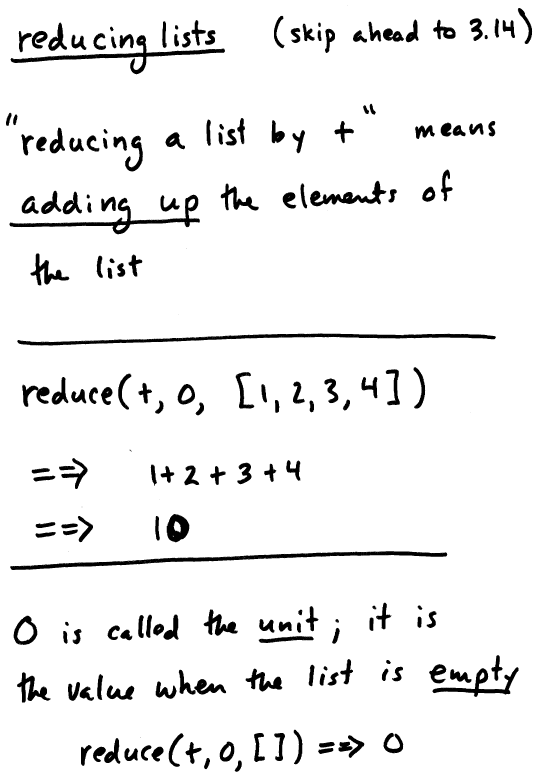 reducing lists (skip ahead to 3.14)
"reducing a list by +" means
adding up the elements of
the list
reduce(+, 0, [1, 2, 3, 4])
==> 1+2+3+4
==> 10
0 is called the unit; it is
the value when the list is empty
reduce(+, 0, []) ==> 0